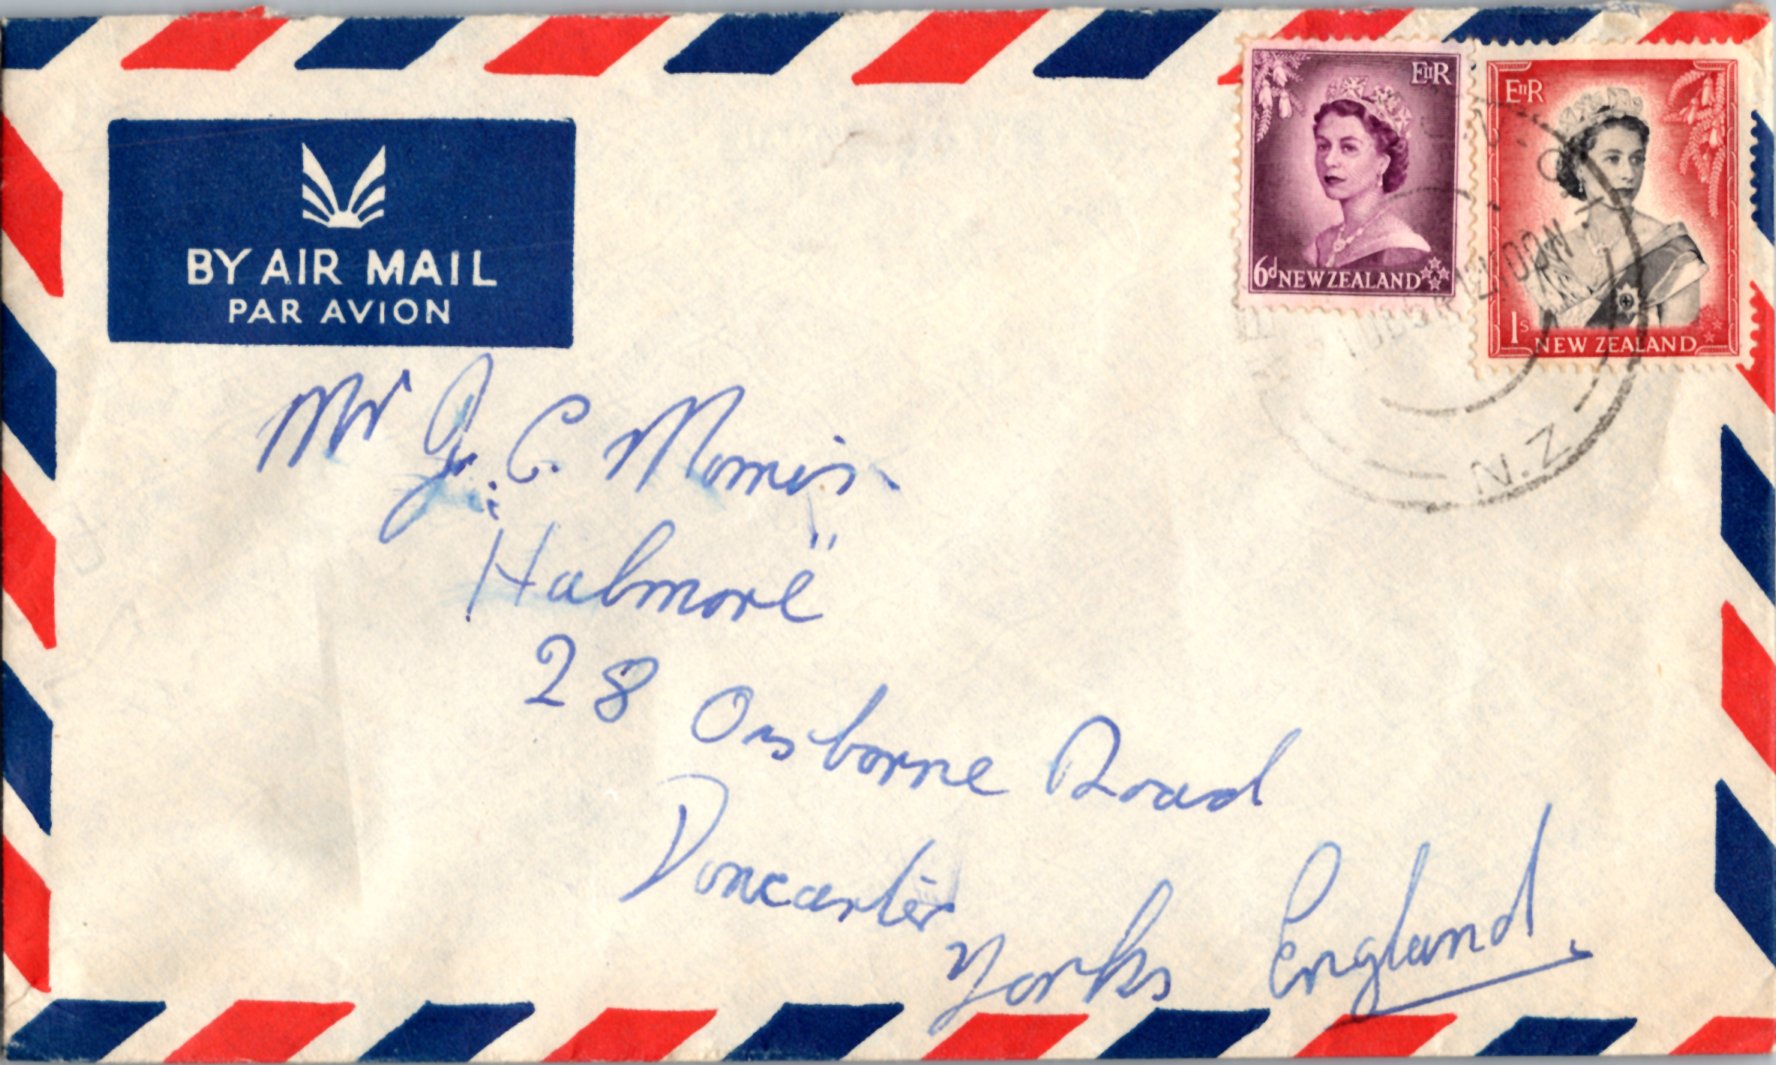 BY AIR MAIL
PAR AVION
EIIR
6d NEW ZEALAND
EIIR
1s NEW ZEALAND
N.Z.
Mr J. C. Morris
"Halmore"
28 Osborne Road
Doncaster
Yorks England